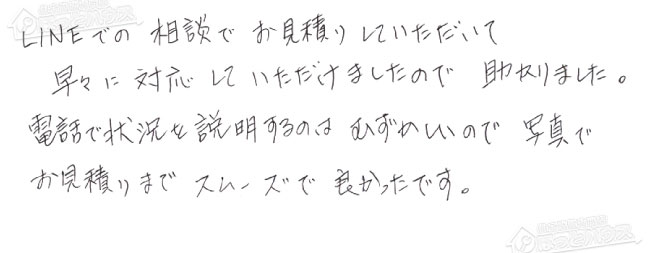 LINEでの 相談で お見積りしていただいて
早々に 対応していただけましたので 助かりました。
電話で状況を説明するのは むずかしいので 写真で
お見積りまで スムーズで 良かったです。